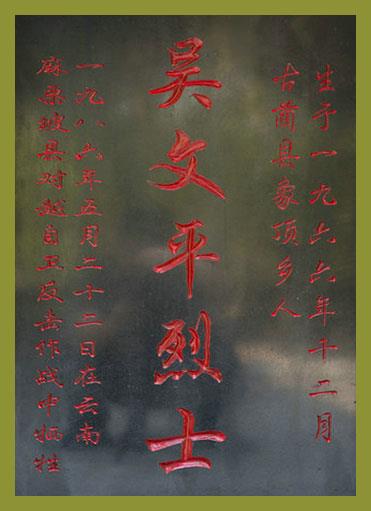 生于一九六六年十二月
古蔺县象顶乡人
吴文平烈士
一九八六年五月二十二日在云南
麻栗坡县对越自卫反击作战中牺牲